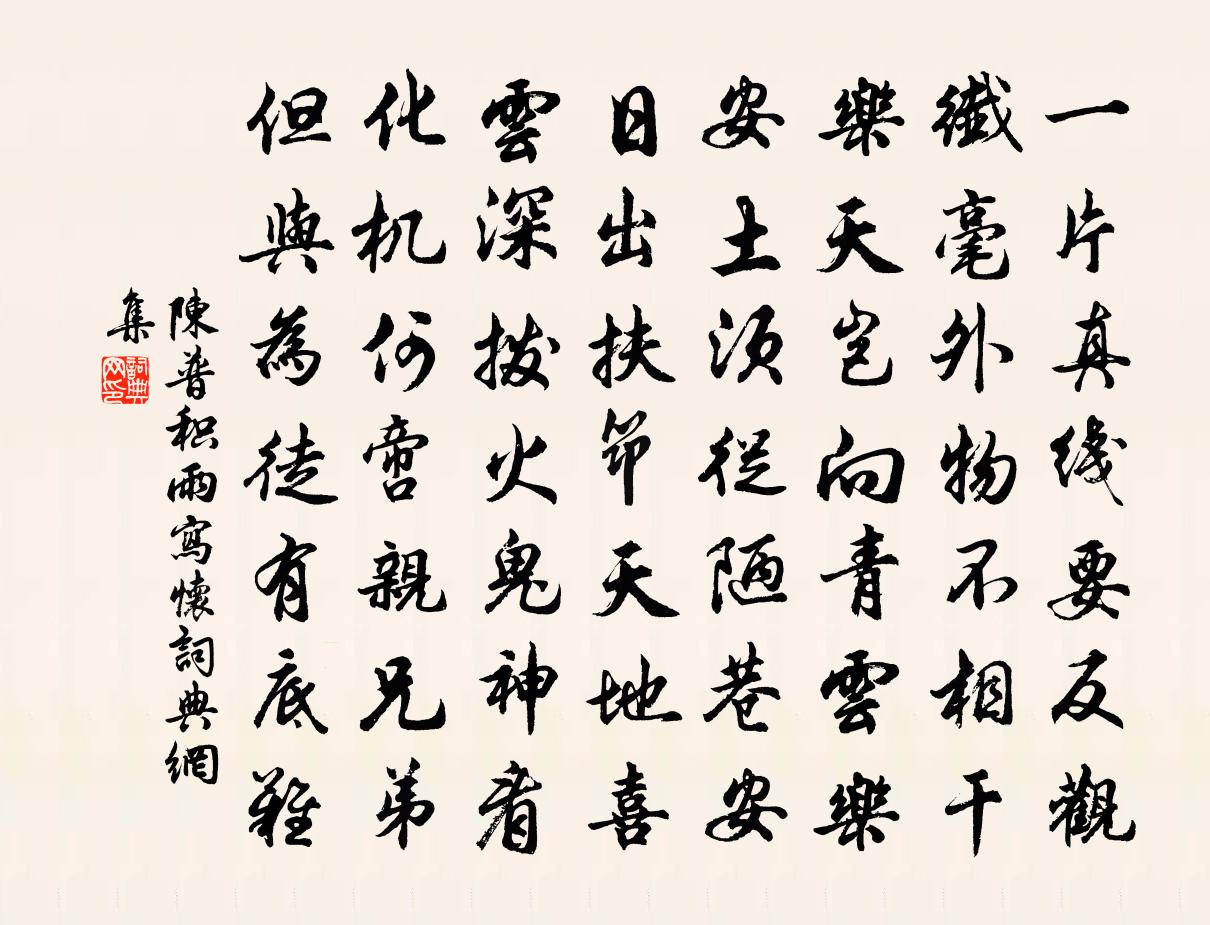 一片真线要反觀
纖毫外物不相干
樂天岂向青雲樂
安土須從陋巷安
日出扶筇天地喜
雲深拨火鬼神看
化机何啻親兄弟
但與為徒有底難
陳普积雨寫懷詞典網
集
詞典
网印